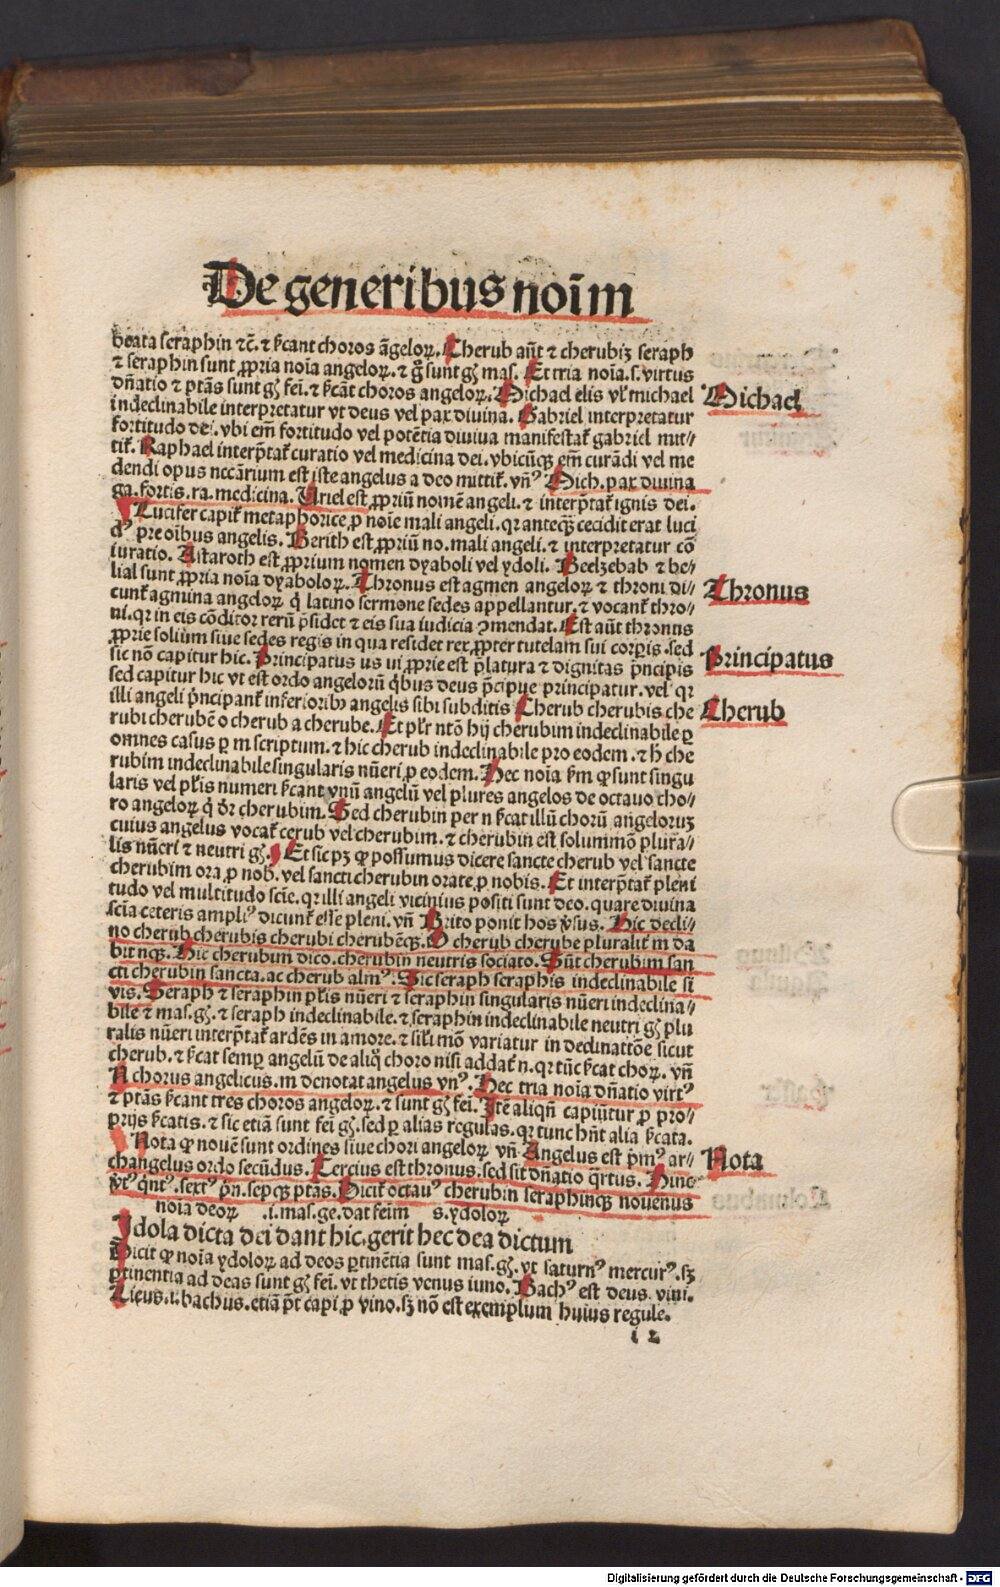 De generibus noīm
beata seraphin ⁊c̄. ⁊ ſc̄ant choros āgeloꝝ. Cherub aūt ⁊ cherubiꝫ seraph
⁊ seraphin sunt ꝓpria noīa angeloꝝ. ⁊ gͦ sunt gn̄s mas. Et tria noīa .s. virtus
dn̄atio ⁊ ptās sunt gn̄s fei. ⁊ ſc̄āt choros angeloꝝ. Michael elis vl̓ michael
Michael
indeclinabile interpretatur vt deus vel pax diuina. Gabriel interpretatur
fortitudo dei. vbi em̄ fortitudo vel potētia diuiua manifestat̉ gabriel mit⸗
tit̉. Raphael interp̄tat̉ curatio vel medicina dei. vbicūqꝫ em̄ curādi vel me
dendi opus necc̄arium est iste angelus a deo mittit̉. vn̄ꝰ Mich. pax diuina
ga. fortis. ra. medicina. Uriel est ꝓpriū nomē angeli. ⁊ interp̄tat̉ ignis dei.
Lucifer capit̉ metaphorice ꝓ noīe mali angeli. qꝛ anteqꝫ cecidit erat luci
dꝰ pre oībus angelis. Berith est ꝓpriū no. mali angeli. ⁊ interpretatur cō
iuratio. Astaroth est ꝓprium nomen dyaboli vel ydoli. Beelzebab ⁊ be⸗
lial sunt ꝓpria noīa dyaboloꝝ. Thronus est agmen angeloꝝ ⁊ throni di⸗
Thronus
cunt̉ agmina angeloꝝ q̄ latino sermone sedes appellantur. ⁊ vocant̉ thro⸗
ni. qꝛ in eis cōditor rerū p̄sidet ⁊ eis sua iudicia ꝯmendat. Est aūt thronus
ꝓprie solium siue sedes regis in qua residet rex ꝓpter tutelam sui corpis. sed
sic nō capitur hic. Principatus us ui ꝓprie est p̄latura ⁊ dignitas p̄ncipis
Principatus
sed capitur hic vt est ordo angeloꝝ q̄bus deus p̄cipue principatur. vel qꝛ
illi angeli p̄ncipant̉ inferiorib̉ angelis sibi subditis Cherub cherubis che
Cherub
rubi cherubē o cherub a cherube. Et pl̓r ntō hij cherubim indeclinabile ꝑ
omnes casus ꝑ m scriptum. ⁊ hic cherub indeclinabile pro eodem. ⁊ h̄ che
rubim indeclinabile singularis nūeri ꝓ eodem. Hec noīa ſm̄ ꝙ sunt singu
laris vel pl̓is numeri ſc̄ant vnū angelū vel plures angelos de octauo cho⸗
ro angeloꝝ q̄ dr̄ cherubim. Sed cherubin per n ſc̄at illū chorū angeloruꝫ
cuius angelus vocat̉ cerub vel cherubim. ⁊ cherubin est solummō plura⸗
lis nūeri ⁊ neutri gn̄s. Et sic pꝫ ꝙ possumus dicere sancte cherub vel sancte
cherubim ora ꝓ nob̉. vel sancti cherubin orate ꝓ nobis. Et interp̄tat̉ pleni
tudo vel multitudo scīe. qꝛ illi angeli vicinius positi sunt deo. quare diuina
scīa ceteris ampliꝰ dicunt̉ esse pleni. vn̄ Brito ponit hos v̓sus. Hic decli⸗
no cherub cherubis cherubi cherubēqꝫ. O cherub cherube pluralit̉ m da
bit nqꝫ. Hic cherubim dico. cherubin neutris sociato. Sūt cherubim san
cti cherubin sancta. ac cherub almꝰ. Sic seraph seraphis indeclinabile si
vis. Seraph ⁊ seraphin pl̓is nūeri ⁊ seraphin singularis nūeri indeclina⸗
bile ⁊ mas. gn̄s. ⁊ seraph indeclinabile. ⁊ seraphin indeclinabile neutri gn̄s plu
ralis nūeri interp̄tat̉ ardēs in amore. ⁊ sil̓i mō variatur in declinatōe sicut
cherub. ⁊ ſc̄at semꝑ angelū de aliq̄ choro nisi addat̉ n. qꝛ tūc ſc̄at choꝝ. vn̄
N chorus angelicus. m denotat angelus vnꝰ. Hec tria noīa dn̄atio virtꝰ
⁊ ptās ſc̄ant tres choros angeloꝝ. ⁊ sunt gn̄s fei. Itē aliqn̄ capiūtur ꝓ pro⸗
prijs ſc̄atis. ⁊ sic etiā sunt fei gn̄s. sed ꝑ alias regulas. qꝛ tunc hn̄t alia ſc̄ata.
Nota ꝙ nouē sunt ordines siue chori angeloꝝ vn̄. Angelus est p̄mꝰ ar⸗
Nota
changelus ordo secūdus. Tercius est thronus. sed sit dn̄atio q̄rtus. Hinc
v̓tꝰ q̄ntꝰ. sextꝰ p̄n. sepqꝫ ptās. Dicit̉ octauꝰ cherubin seraphinqꝫ nouenus
noīa deoꝝ .i. mas. ge. dat feim s. ydoloꝝ
Idola dicta dei dant hic. gerit hec dea dictum
Dicit ꝙ noīa ydoloꝝ ad deos ꝑtinētia sunt mas. gn̄s. vt saturnꝰ mercurꝰ. sꝫ
ꝑtinentia ad deas sunt gn̄s fei. vt thetis venus iuno. Bachꝰ est deus vini.
Licus .i. bachus. etiā p̄t capi ꝓ vino. sꝫ nō est exemplum huius regule.
i 2
Digitalisierung gefördert durch die Deutsche Forschungsgemeinschaft - DFG